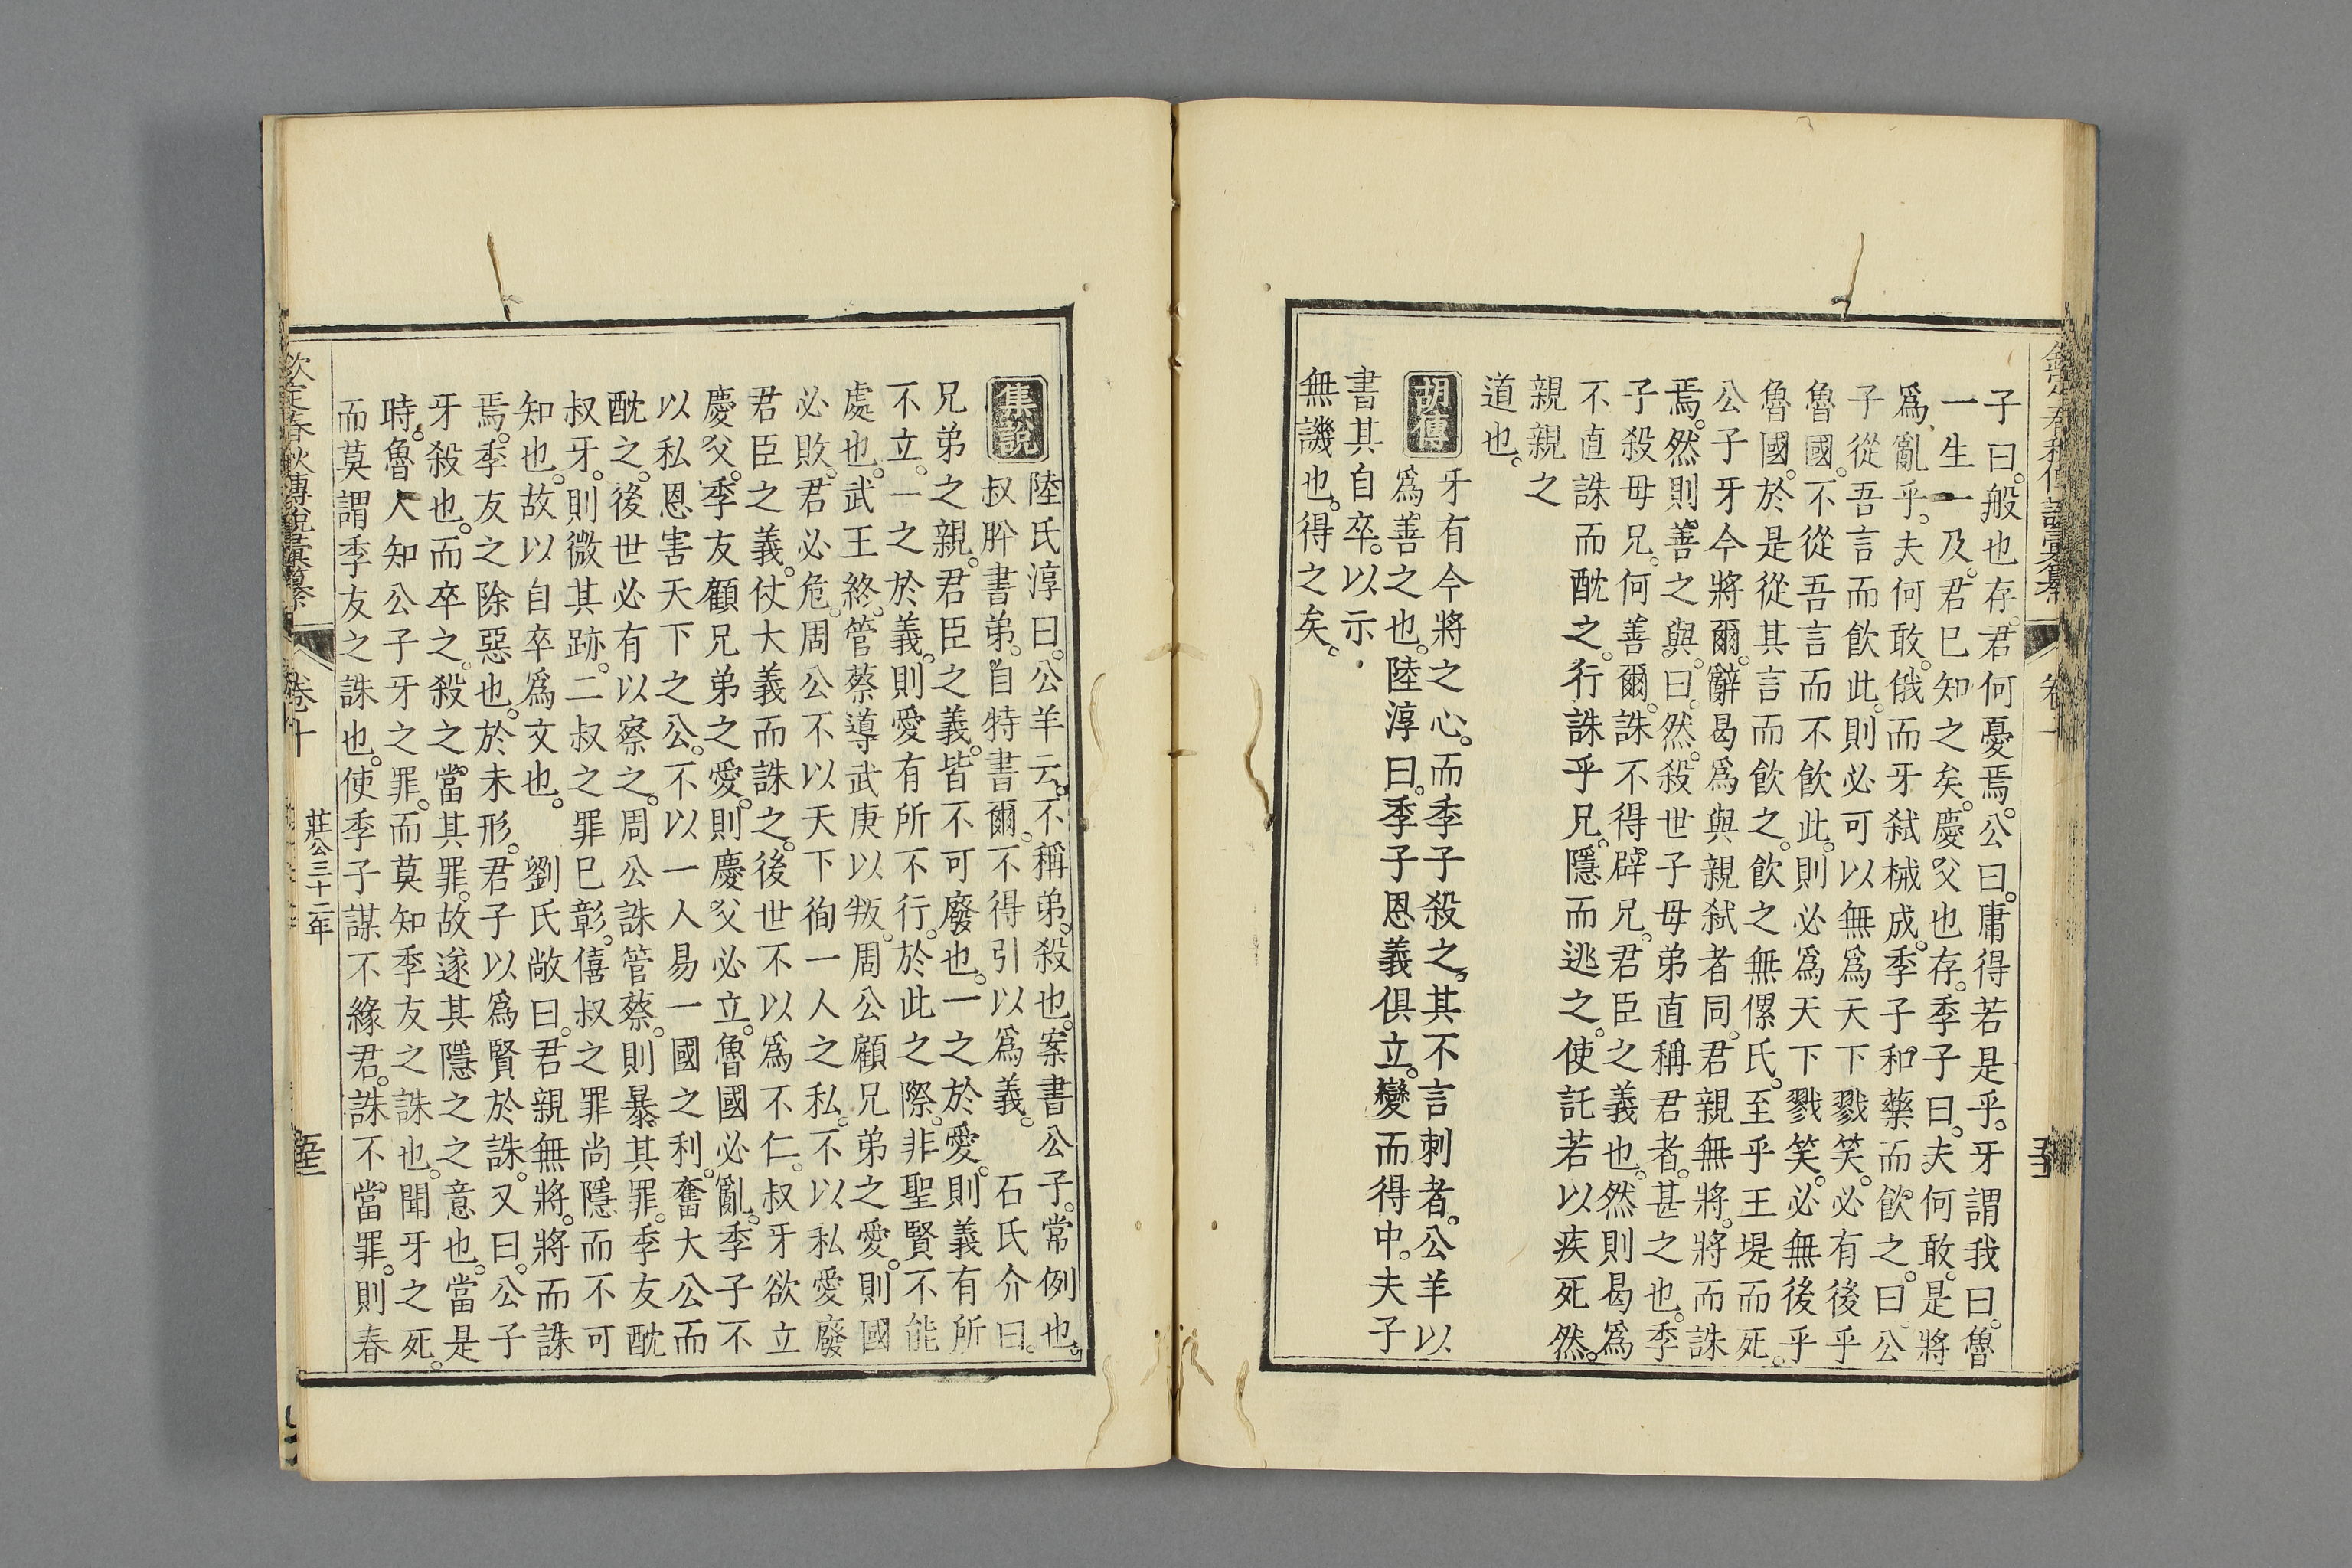 子曰。般也存。君何憂焉。公曰。庸得若是乎。牙謂我曰。魯
一生一及。君已知之矣。慶父也存。季子曰。夫何敢。是將
爲亂乎。夫何敢。俄而牙弑械成。季子和藥而飮之。曰。公
子從吾言而飮此。則必可以無爲天下戮笑。必有後乎
魯國。不從吾言而不飮此。則必爲天下戮笑。必無後乎
魯國。於是從其言而飮之。飮之無傫氏。至乎王堤而死。
公子牙今將爾。辭曷爲與親弑者同。君親無將。將而誅
焉。然則善之與。曰。然。殺世子母弟直稱君者。甚之也。季
子殺母兄。何善爾。誅不得辟兄。君臣之義也。然則曷爲
不直誅而酖之。行誅乎兄。隱而逃之。使託若以疾死然。
親親之
道也。
胡傳
牙有今將之心。而季子殺之。其不言刺者。公羊以
爲善之也。陸淳曰。季子恩義俱立。變而得中。夫子
書其自卒。以示
無譏也。得之矣。
卷十
集說
陸氏淳曰。公羊云。不稱弟。殺也。案書公子。常例也。
叔肸書弟。自特書爾。不得引以爲義。 石氏介曰。
兄弟之親。君臣之義。皆不可廢也。一之於愛。則義有所
不立。一之於義。則愛有所不行。於此之際。非聖賢不能
處也。武王終。管蔡導武庚以叛。周公顧兄弟之愛。則國
必敗。君必危。周公不以天下徇一人之私。不以私愛廢
君臣之義。仗大義而誅之。後世不以爲不仁。叔牙欲立
慶父。季友顧兄弟之愛。則慶父必立。魯國必亂。季子不
以私恩害天下之公。不以一人易一國之利。奮大公而
酖之。後世必有以察之。周公誅管蔡。則暴其罪。季友酖
叔牙。則微其跡。二叔之罪已彰。僖叔之罪尚隱而不可
知也。故以自卒爲文也。 劉氏敞曰。君親無將。將而誅
焉。季友之除惡也。於未形。君子以爲賢於誅。又曰。公子
牙殺也。而卒之。殺之。當其罪。故遂其隱之之意也。當是
時。魯人知公子牙之罪。而莫知季友之誅也。聞牙之死。
而莫謂季友之誅也。使季子謀不緣君。誅不當罪。則春
欽定春秋傳說彙纂
卷十
莊公三十二年